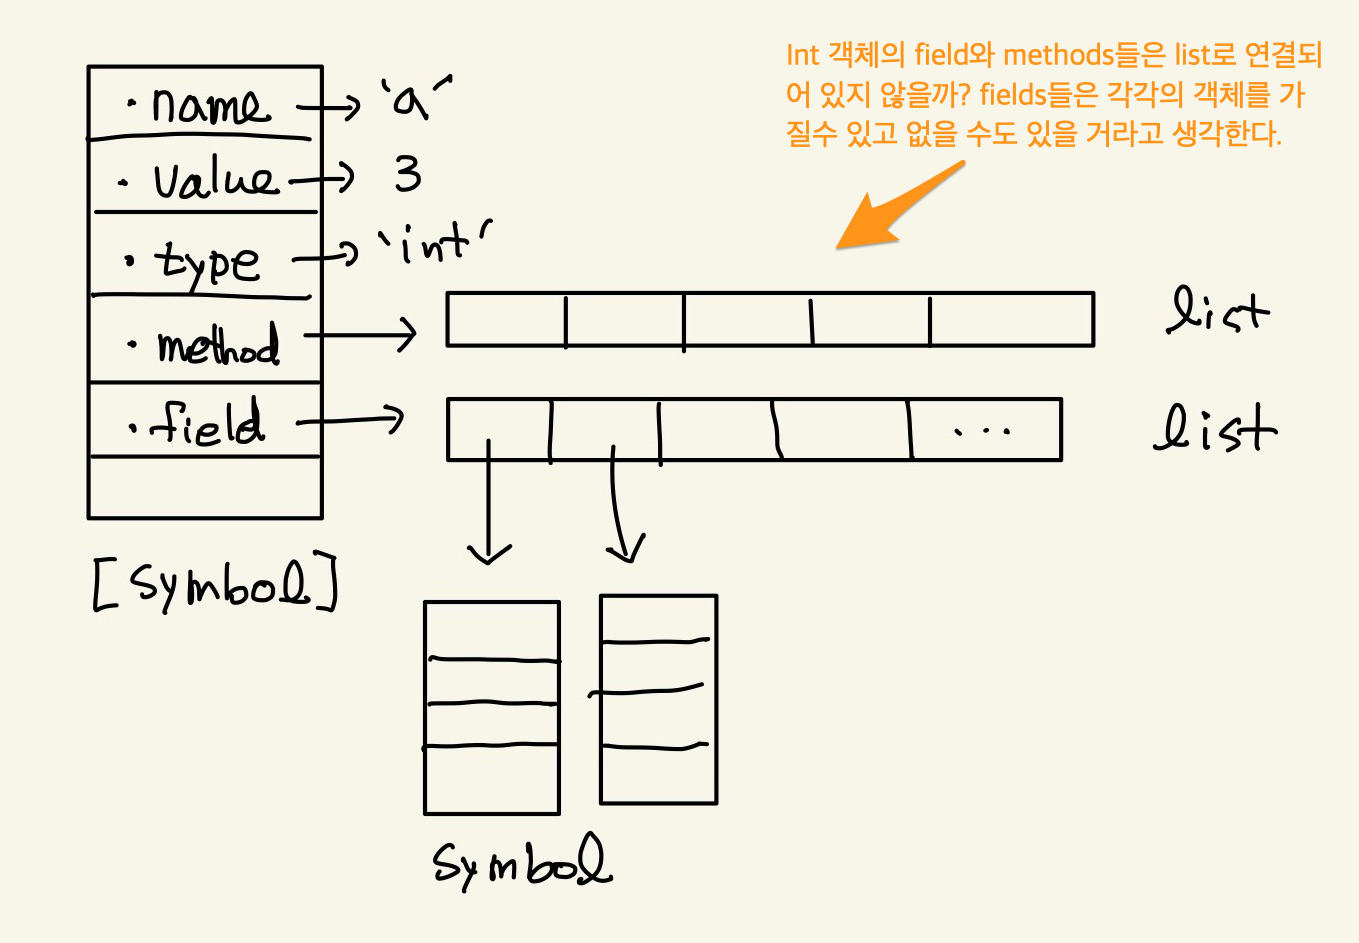 Int 객체의 field와 methods들은 list로 연결되
어 있지 않을까? fields들은 각각의 객체를 가
질수 있고 없을 수도 있을 거라고 생각한다.
· name → 'a'
· value → 3
· type → 'int'
· method → list
· field → list
...
[symbol]
symbol